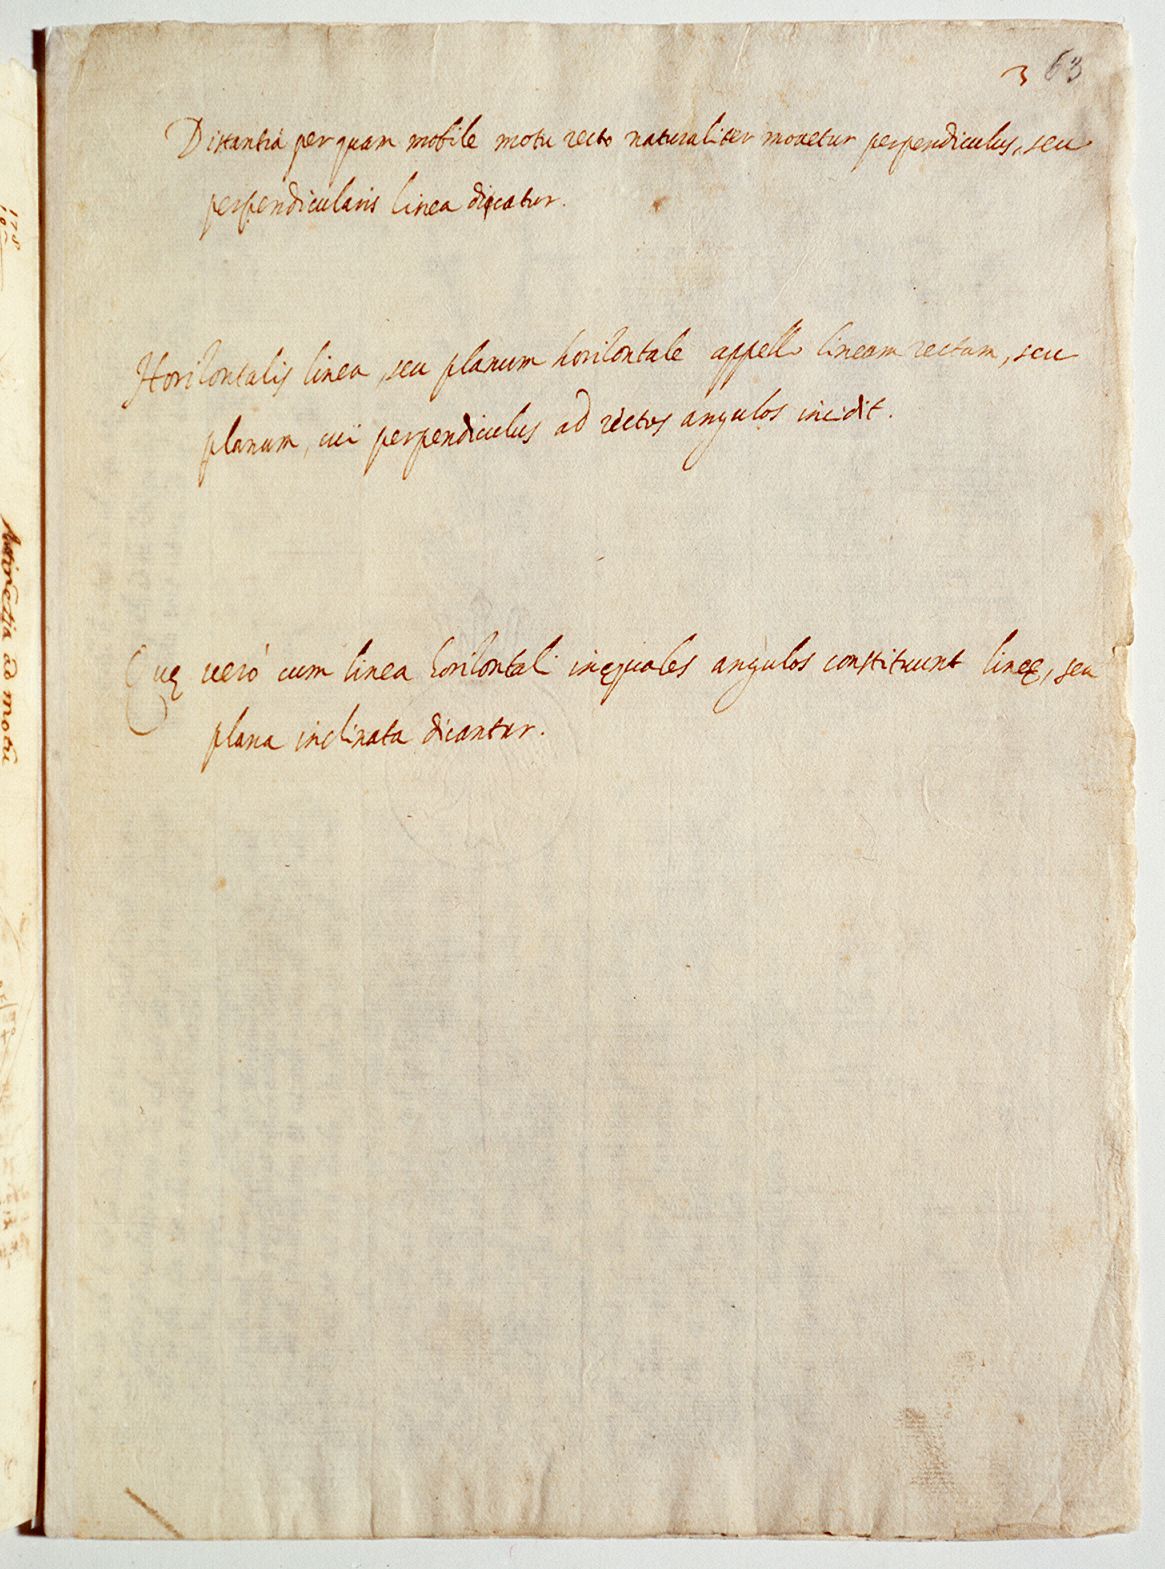 3 63
Distantia per quam mobile motu recto naturaliter movetur perpendiculus, seu
perpendicularis linea dicatur.
Horizontalis linea, seu planum horizontale appello lineam rectam, seu
planum, cui perpendiculus ad rectos angulos incidit.
Quę verò cum linea horizontali inęquales angulos constituunt lineę, seu
plana inclinata dicantur.
178
ad motū